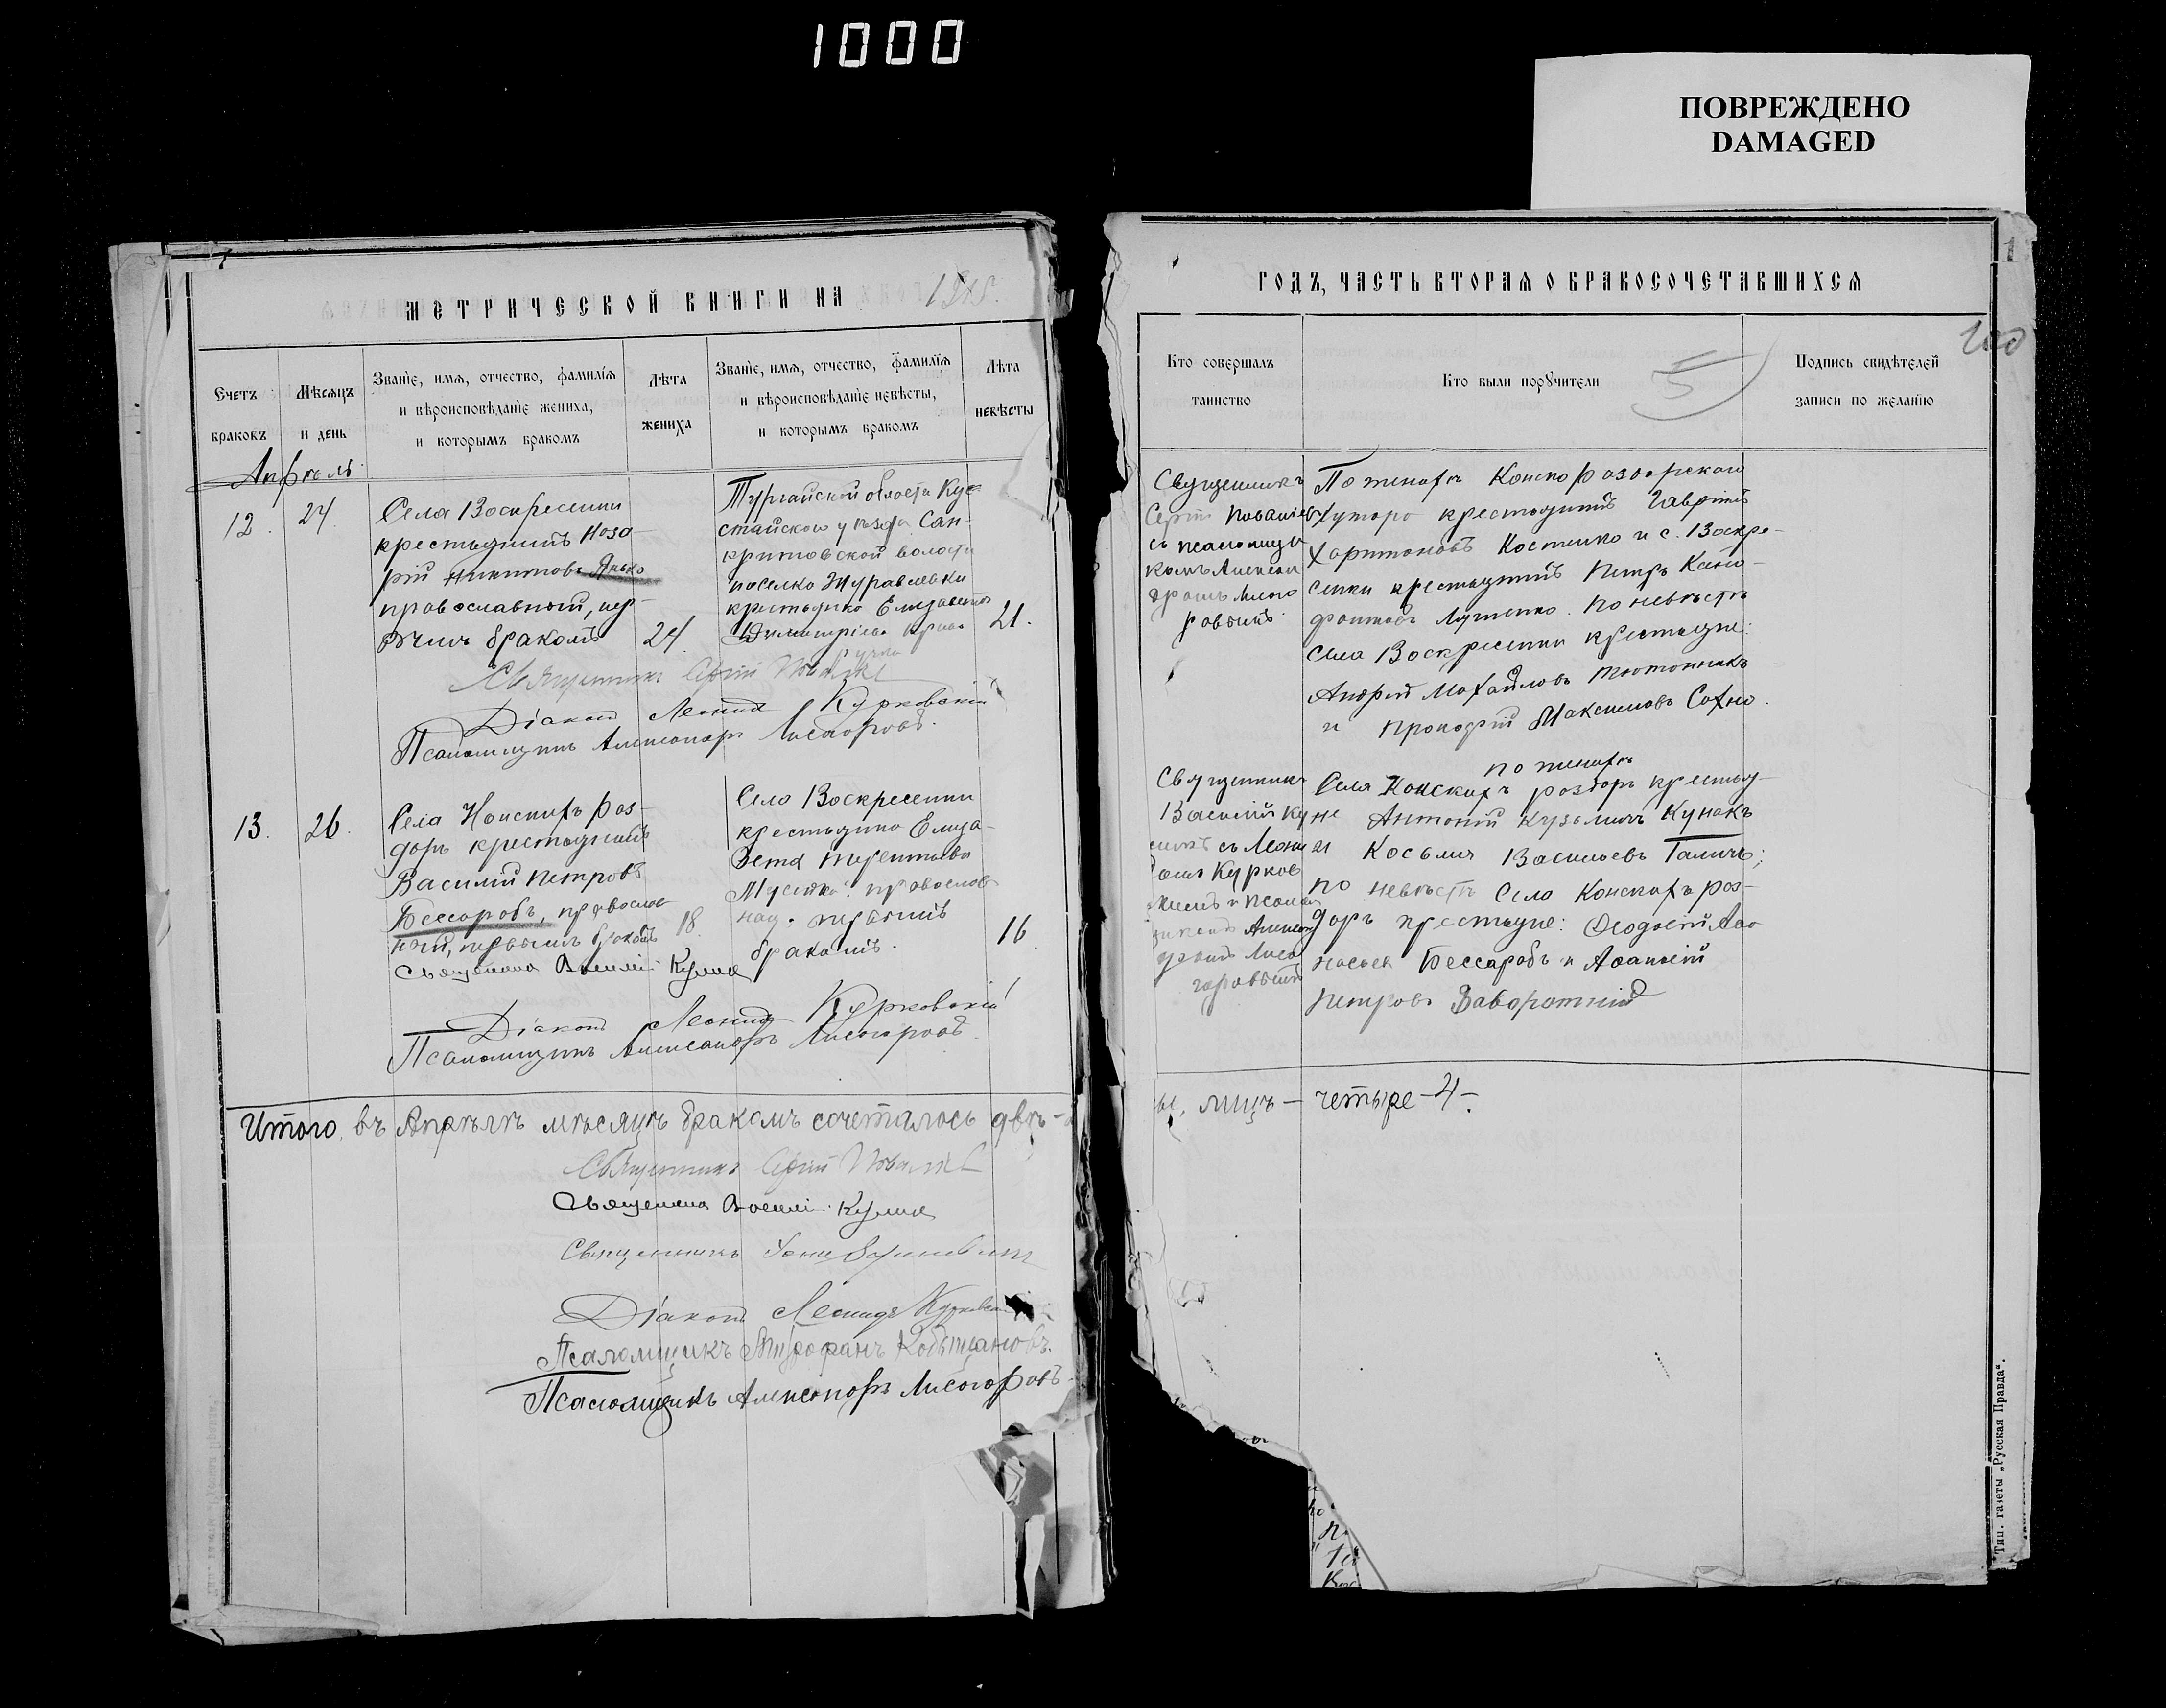 1000
ПОВРЕЖДЕНО
DAMAGED
МЕТРИЧЕСКОЙ КНИГИ НА
ГОДЪ, ЧАСТЬ ВТОРАЯ О БРАКОСОЧЕТАВШИХСЯ
Счетъ
браковъ
Мѣсяцъ
и день
Званіе, имя, отчество, фамилія
и вѣроисповѣданіе жениха,
и которымъ бракомъ
Лѣта
жениха
Званіе, имя, отчество, фамилія
и вѣроисповѣданіе невѣсты,
и которымъ бракомъ
Лѣта
невѣсты
Кто совершалъ
таинство
Кто были поручители
Подпись свидѣтелей
записи по желанію
200
5
Апрѣль
12.
24
Села Воскресенки
крестьянинъ Наза-
рій Никитовъ Янько
православный, пер-
вымъ бракомъ
24.
Тургайской области Кус-
танайскаго уѣзда
волости
поселка Журавлевки
крестьянка Елизавета
Димитріева
21.
Священникъ
Сергій
съ псаломщи-
комъ Алексан-
дромъ Лисого-
ровымъ
По женихѣ Конско Раздорскаго
Хутора крестьянинъ Гавріилъ
Харитоновъ Костенко и с. Воскре-
сенки крестьянинъ Петръ
Луценко. По невѣстѣ
села Воскресенки крестьяне:
Андрей Михайловъ Тютюнникъ
и Прокофій Максимовъ Сохно.
Священникъ Сергій
Діаконъ Леонидъ Курковскій
Псаломщикъ Александръ Лисогоровъ.
13.
26.
Села Конскихъ Раз-
доръ крестьянинъ
Василій Петровъ
Бессарабъ, православ-
ный, первымъ бракомъ
18.
Села Воскресенки
крестьянка Елиза-
вета Терентьева
православ-
ная. первымъ
бракомъ.
16.
Священникъ
Василій
съ
Курков-
скимъ и псалом-
щикомъ Алексан-
дромъ Лисо-
горовымъ
по женихѣ
Села Конскихъ раздоръ крестья-
не Антоній Кузьминъ Кунакъ
и Косьма Васильевъ Галичъ;
по невѣстѣ села Конскихъ раз-
доръ крестьяне: Феодосій Афа-
насьевъ Бессарабъ и Афанасій
Петровъ Заворотній
Священникъ Василій
Діаконъ Леонидъ Курковскій
Псаломщикъ Александръ Лисогоровъ
Итого въ Апрѣлѣ мѣсяцѣ бракомъ сочеталось двѣ
лицъ – четыре – 4 –
Священникъ Сергій
Священникъ Василій
Священникъ
Діаконъ Леонидъ Курковскій
Псаломщикъ Митрофанъ Кобыщановъ.
Псаломщикъ Александръ Лисогоровъ
Тип. газеты „Русская Правда“.